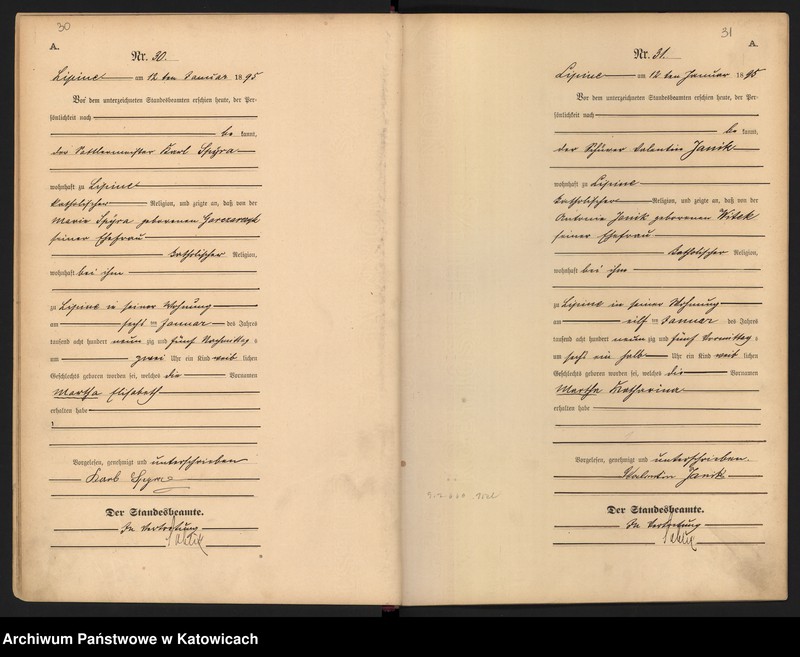 30
A.
Nr. 30.
Lipine am 12 ten Januar 1895
Vor dem unterzeichneten Standesbeamten erschien heute, der Per-
sönlichkeit nach
be kannt,
der Sattlermeister Karl Spyra
wohnhaft zu Lipine
katholischer Religion, und zeigte an, daß von der
Marie Spyra geborenen
seiner Ehefrau
katholischer Religion,
wohnhaft bei ihm
zu Lipine in seiner Wohnung
am sechs ten Januar des Jahres
tausend acht hundert neun zig und fünf Nachmittag s
um zwei Uhr ein Kind weib lichen
Geschlechts geboren worden sei, welches die Vornamen
Martha Elisabeth
erhalten habe
Vorgelesen, genehmigt und unterschrieben
Karl Spyra
Der Standesbeamte.
In Vertretung
31
A.
Nr. 31.
Lipine am 12 ten Januar 1895
Vor dem unterzeichneten Standesbeamten erschien heute, der Per-
sönlichkeit nach
be kannt,
der Valentin Janik
wohnhaft zu Lipine
katholischer Religion, und zeigte an, daß von der
Antonie Janik geborenen Witek
seiner Ehefrau
katholischer Religion,
wohnhaft bei ihm
zu Lipine in seiner Wohnung
am eilf ten Januar des Jahres
tausend acht hundert neun zig und fünf Vormittag s
um sechs ein halb Uhr ein Kind weib lichen
Geschlechts geboren worden sei, welches die Vornamen
Martha Katharina
erhalten habe
Vorgelesen, genehmigt und unterschrieben.
Valentin Janik
Der Standesbeamte.
In Vertretung
Archiwum Państwowe w Katowicach